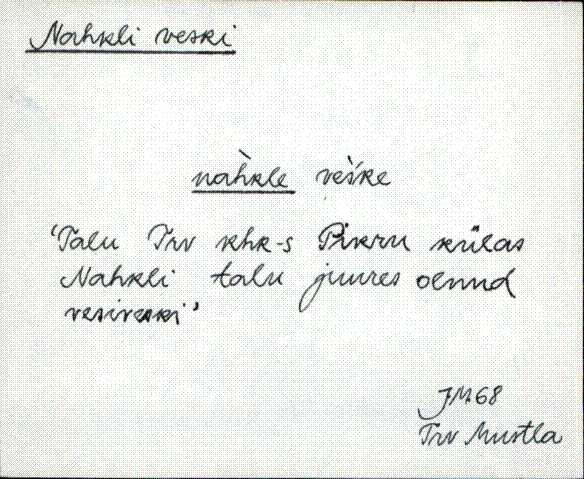 Nahkli veski
nàhkle veśke
'Talu Trv khk-s Pikru külas
Nahkli talu juures olnud
vesiveski'
JM 68
Trv Mustla